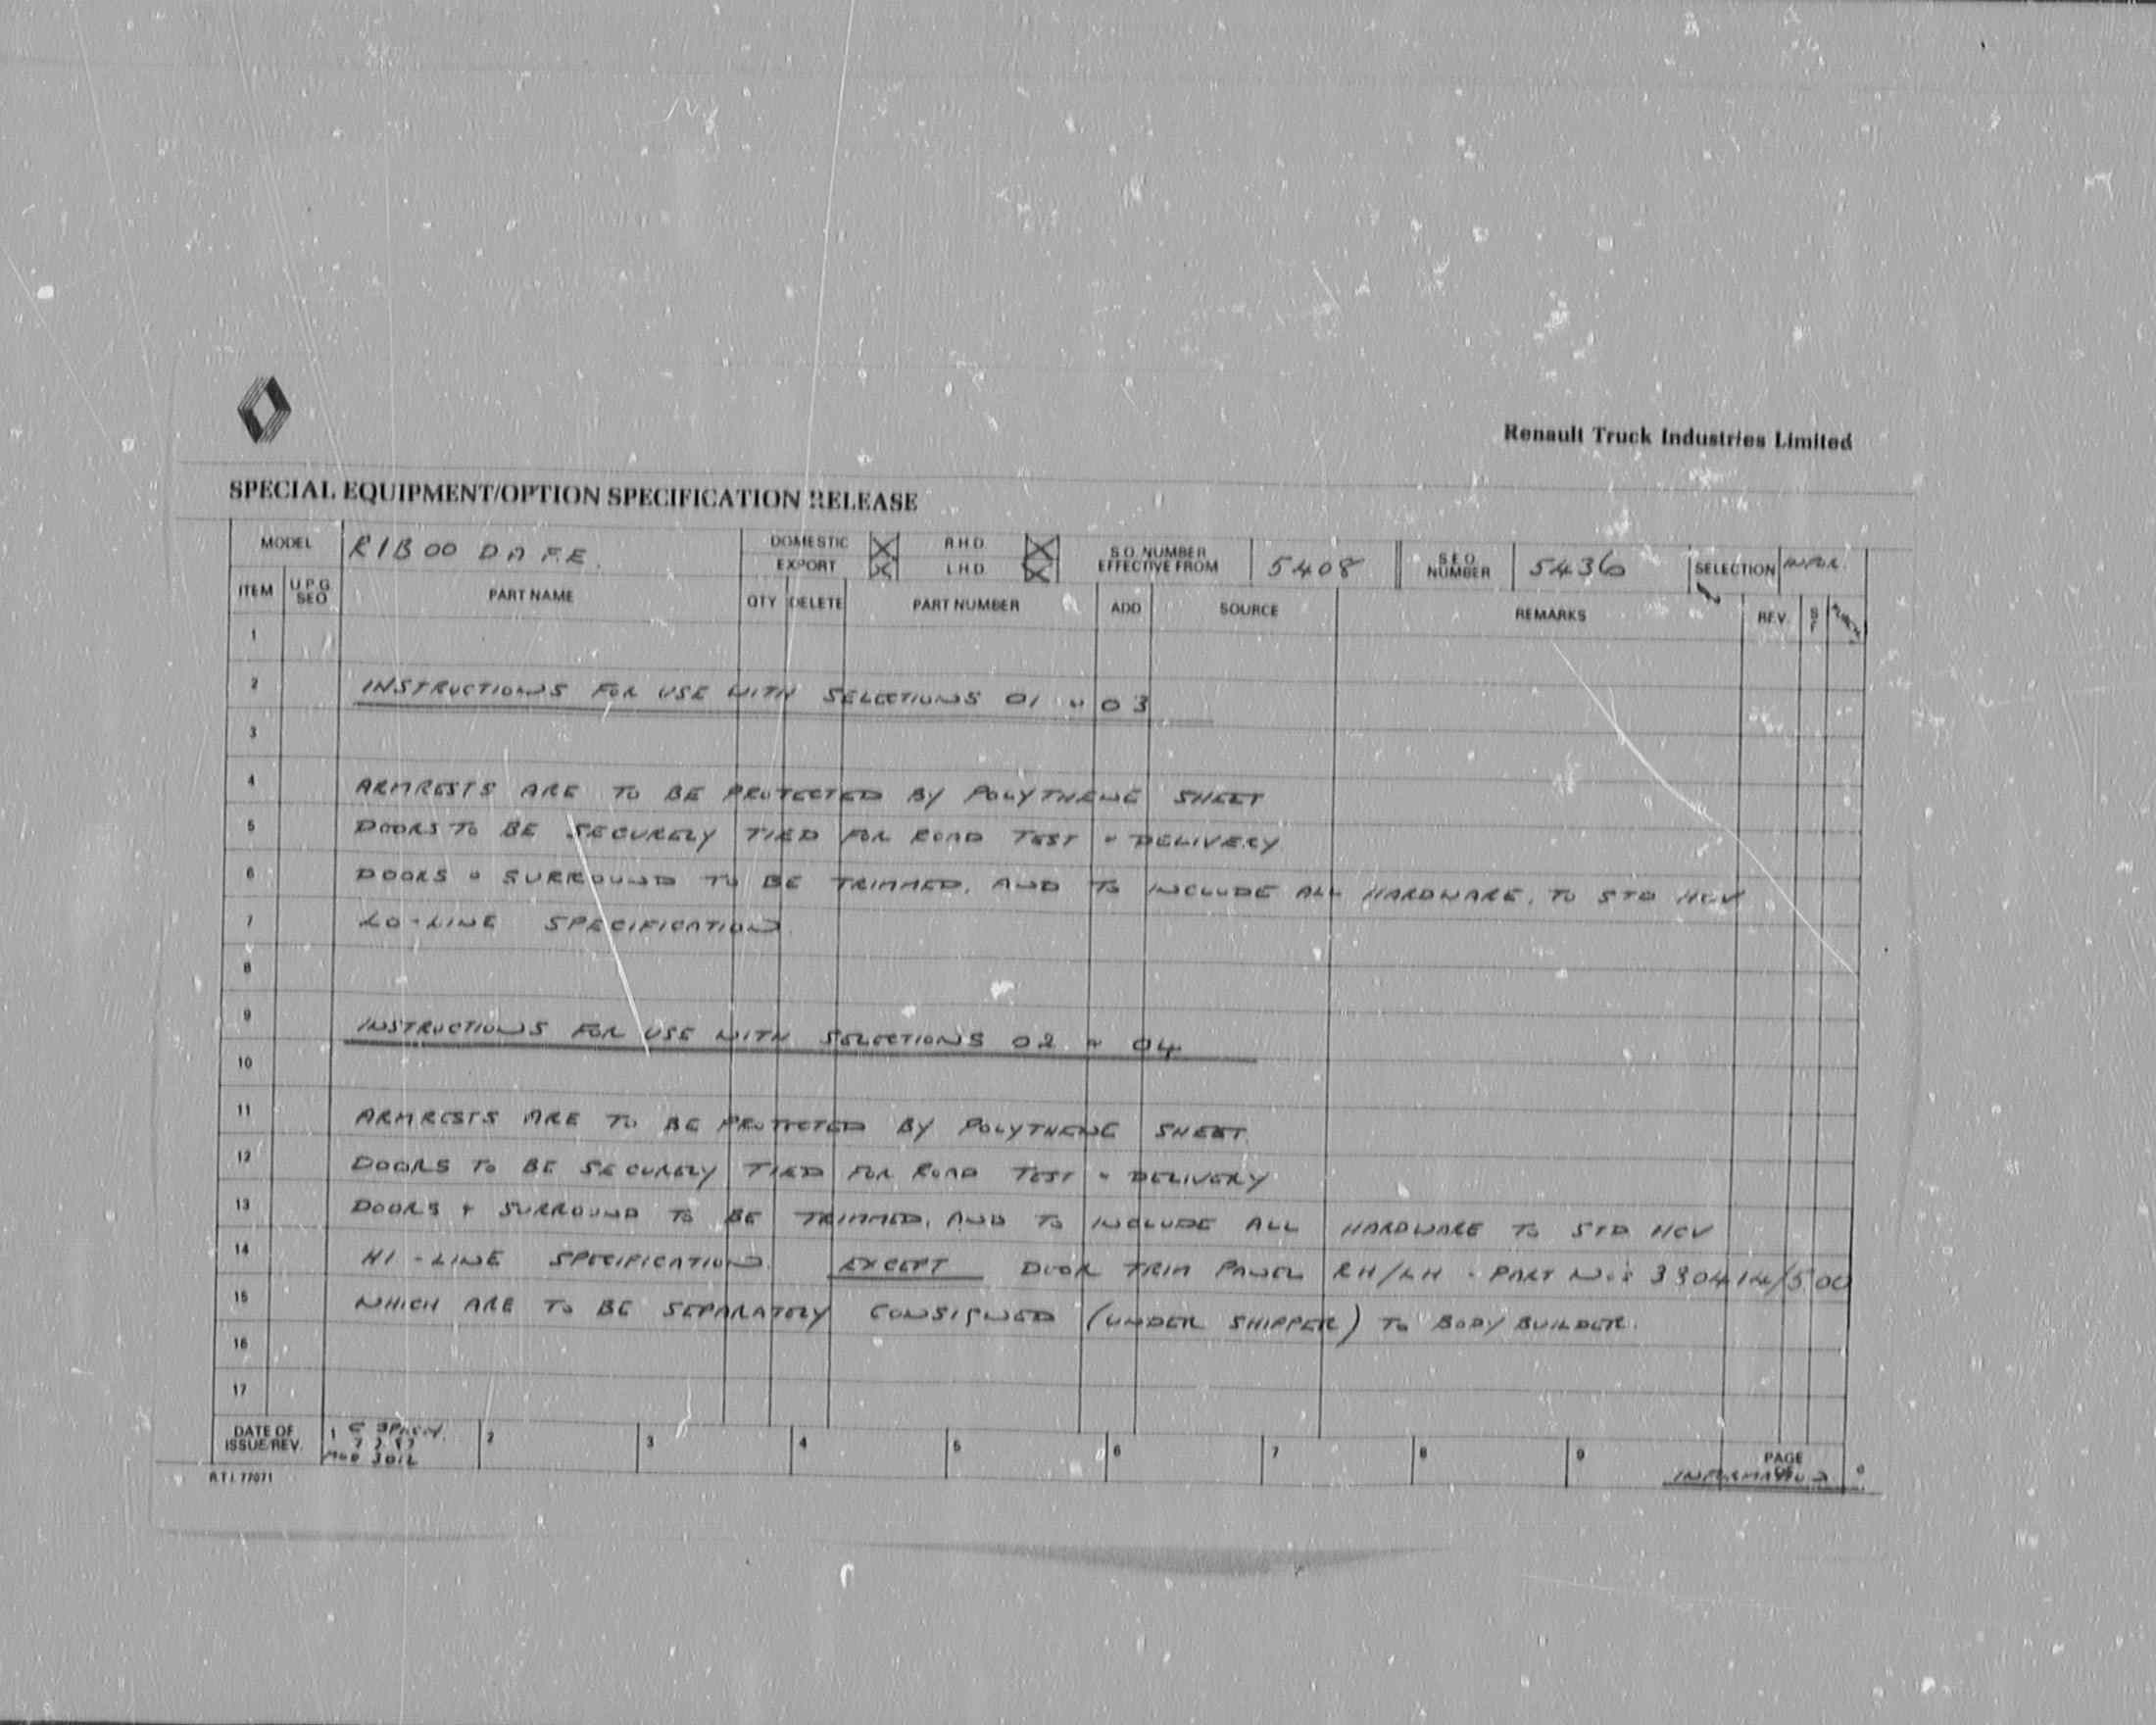 Renault Truck Industries Limited
SPECIAL EQUIPMENT/OPTION SPECIFICATION RELEASE
MODEL R1B00 DAFE. DOMESTIC EXPORT R.H.D. L.H.D. S.O. NUMBER EFFECTIVE FROM 5408 S.E.O. NUMBER 5436 SELECTION
ITEM U.P.G. SEO PART NAME QTY DELETE PART NUMBER ADD SOURCE REMARKS REV.
1
2 INSTRUCTIONS FOR USE WITH SELECTIONS 01 " 03
3
4 ARMRESTS ARE TO BE PROTECTED BY POLYTHENE SHEET
5 DOORS TO BE SECURELY TIED FOR ROAD TEST - DELIVERY
6 DOORS & SURROUND TO BE TRIMMED, AND TO INCLUDE ALL HARDWARE, TO STD HCV
7 LO-LINE SPECIFICATION
8
9 INSTRUCTIONS FOR USE WITH SELECTIONS 02 " 04
10
11 ARMRESTS ARE TO BE PROTECTED BY POLYTHENE SHEET
12 DOORS TO BE SECURELY TIED FOR ROAD TEST - DELIVERY
13 DOORS + SURROUND TO BE TRIMMED, AND TO INCLUDE ALL HARDWARE TO STD HCV
14 HI-LINE SPECIFICATION. EXCEPT DOOR TRIM PANEL RH/LH - PART No's 330414/500
15 WHICH ARE TO BE SEPARATELY CONSIGNED (UNDER SHIPPER) TO BODY BUILDER.
16
17
DATE OF ISSUE/REV. 1 2 3 4 5 6 7 8 9 PAGE
MOD 3012 INFORMATION
R.T.I. 77071